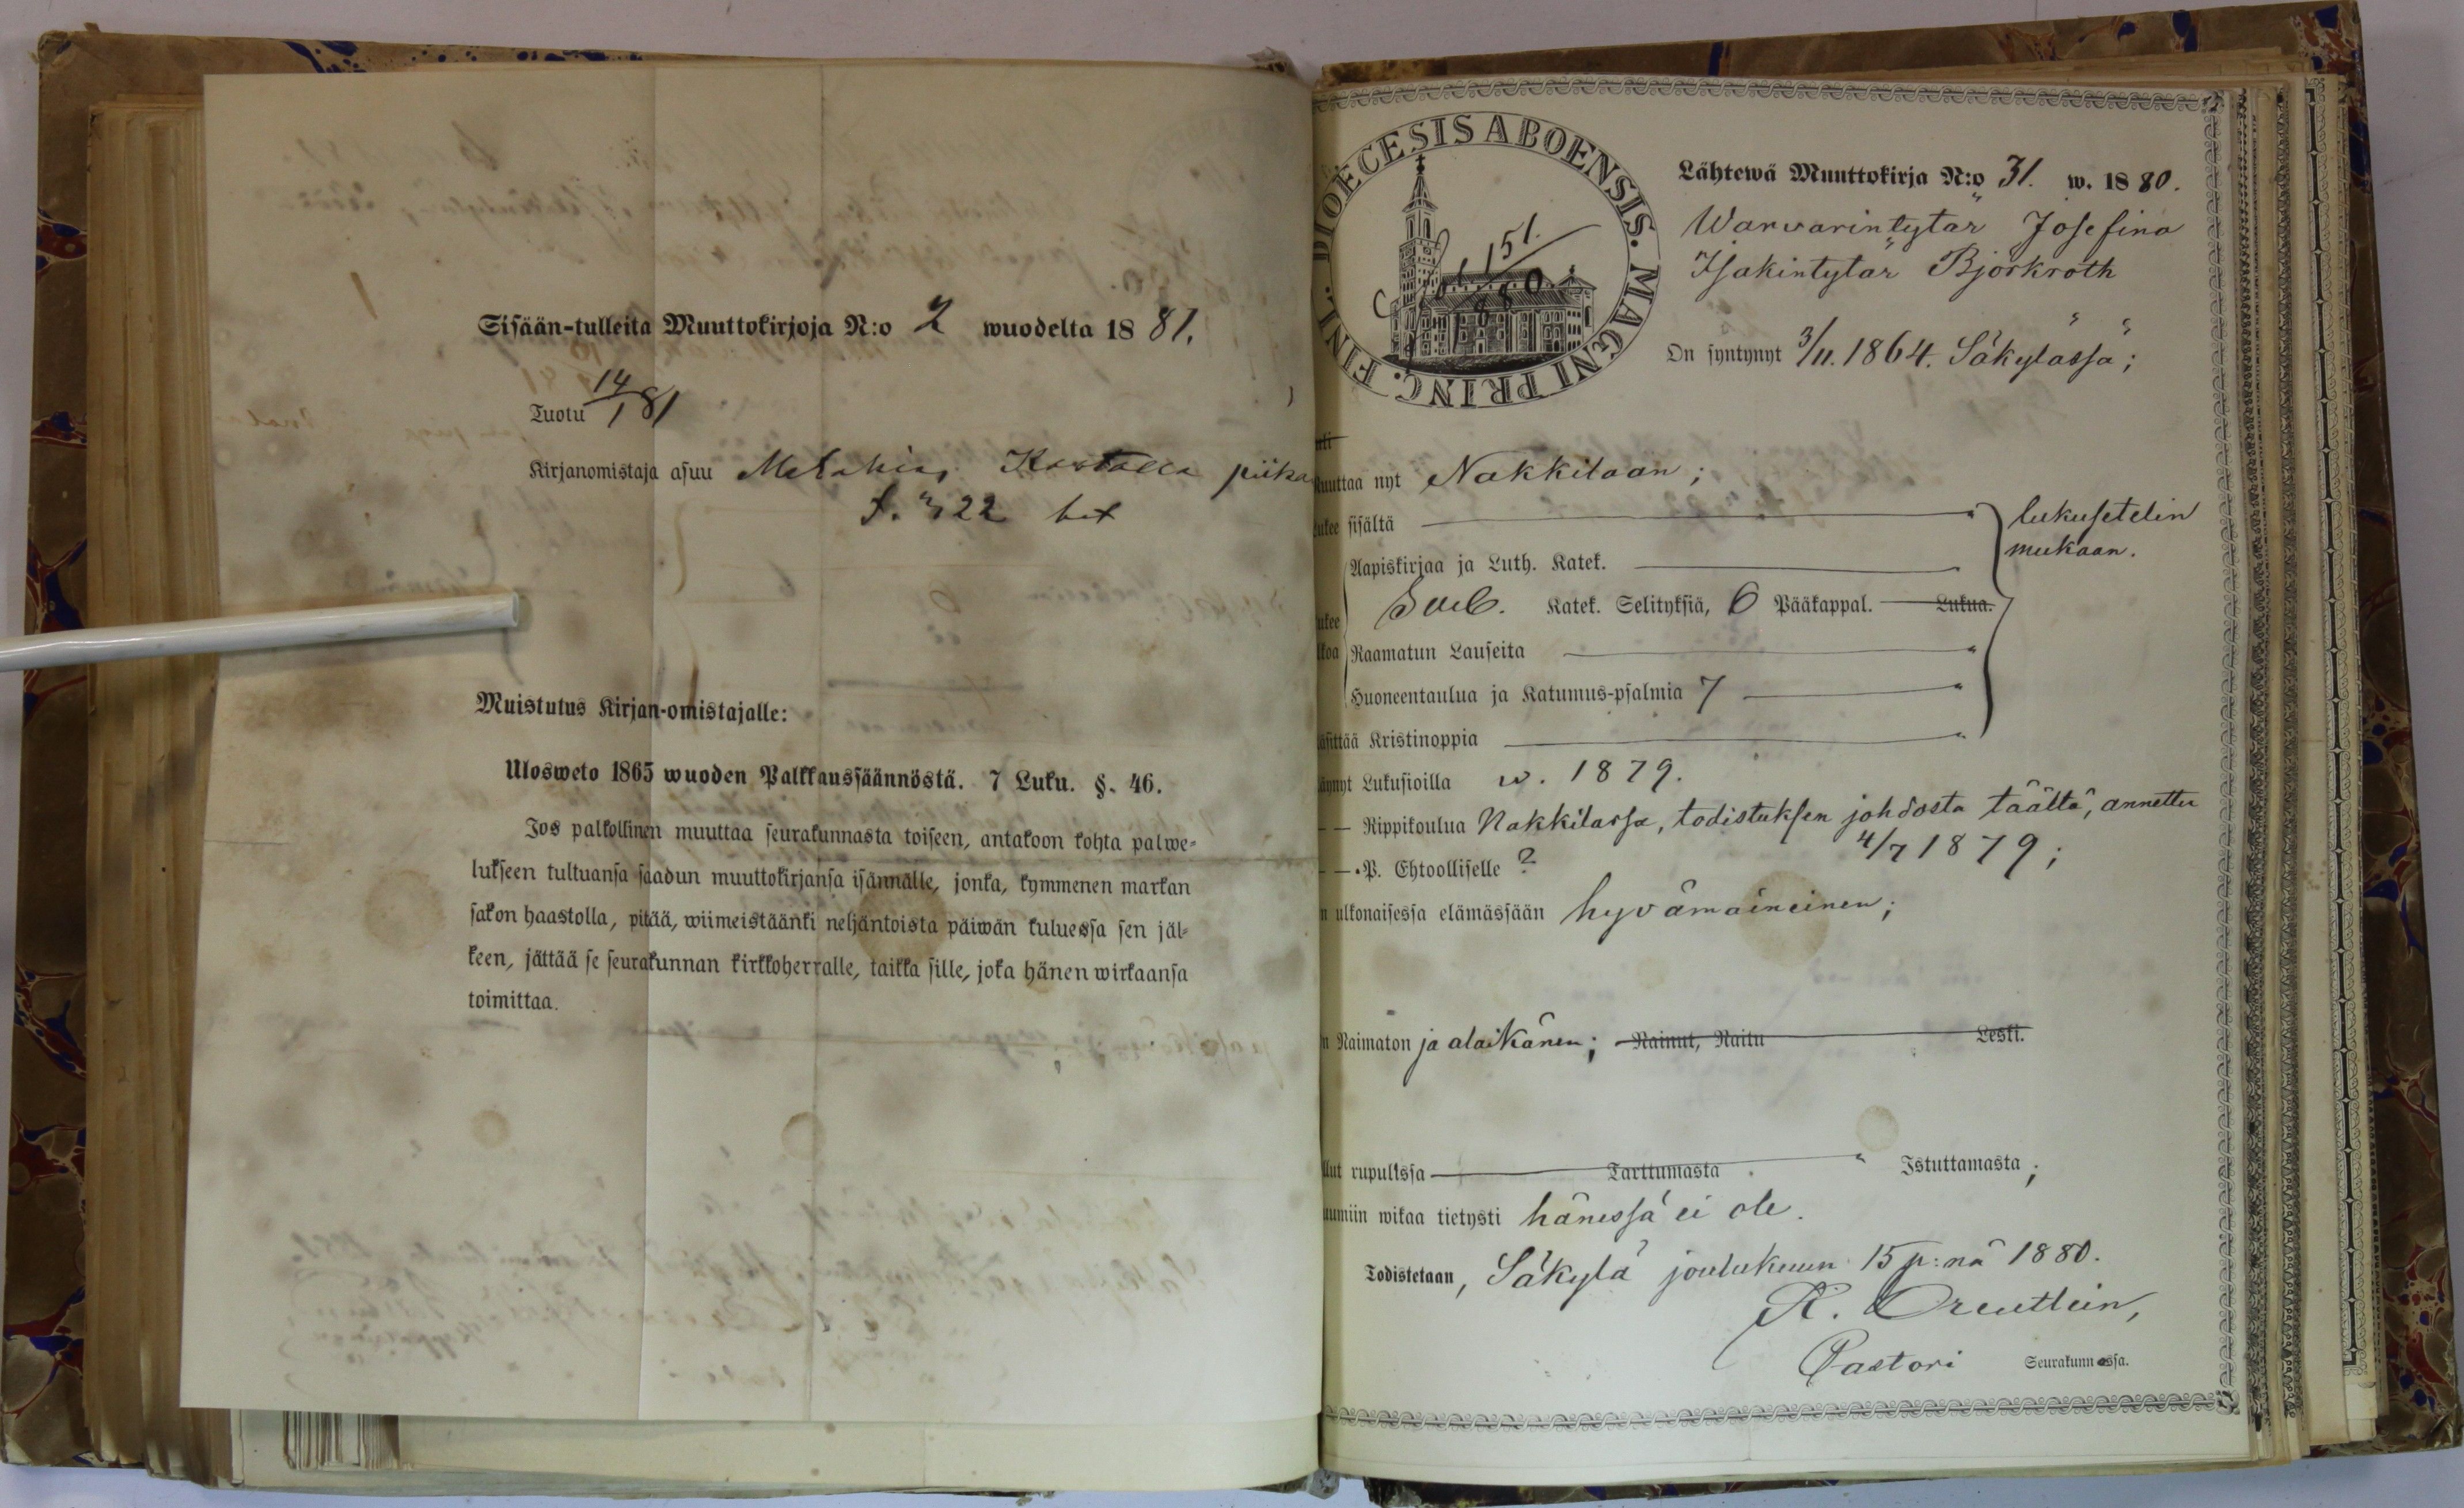 Sisään-tulleita Muuttokirjoja N:o 2 wuodelta 1881.
Tuotu 14/1 81
Kirjanomistaja asuu Kastalla piika
22
Muistutus Kirjan-omistajalle:
Ulosweto 1865 wuoden Palkkaussäännöstä. 7 Luku. §. 46.
Jos palkollinen muuttaa seurakunnasta toiseen, antakoon kohta palwe-
lukseen tultuansa saadun muuttokirjansa isännälle, jonka, kymmenen markan
sakon haastolla, pitää, wiimeistäänki neljäntoista päiwän kuluessa sen jäl-
keen, jättää se seurakunnan kirkkoherralle, taikka sille, joka hänen wirkaansa
toimittaa.
DIOECESIS ABOENSIS. MAGNI PRINC. FINL.
151.
1880
Lähtewä Muuttokirja N:o 31. w. 1880.
Warvarintytär Josefina
Isakintytär Björkroth
On syntynyt 3/11. 1864. Säkylässä;
Muuttaa nyt Nakkilaan;
Lukee sisältä lukusetelin
mukaan.
Aapiskirjaa ja Luth. Katek.
Sveb. Katek. Selityksiä, 6 Pääkappal. Lukua.
Raamatun Lauseita
Huoneentaulua ja Katumus-psalmia 7
Käsittää Kristinoppia
Käynyt Lukusioilla w. 1879.
— — Rippikoulua Nakkilassa, todistuksen johdosta täältä, annettu
4/7 1879;
— — P. Ehtoolliselle ?
On ulkonaisessa elämässään hyvämaineinen;
On Naimaton ja alaikänen; Nainut, Naitu Leski.
Ollut rupulissa Tarttumasta Istuttamasta;
Ruumiin wikaa tietysti hänessä ei ole.
Todistetaan, Säkylä joulukuun 15 p:nä 1880.
K. Oreutlin,
Pastori Seurakunnassa.